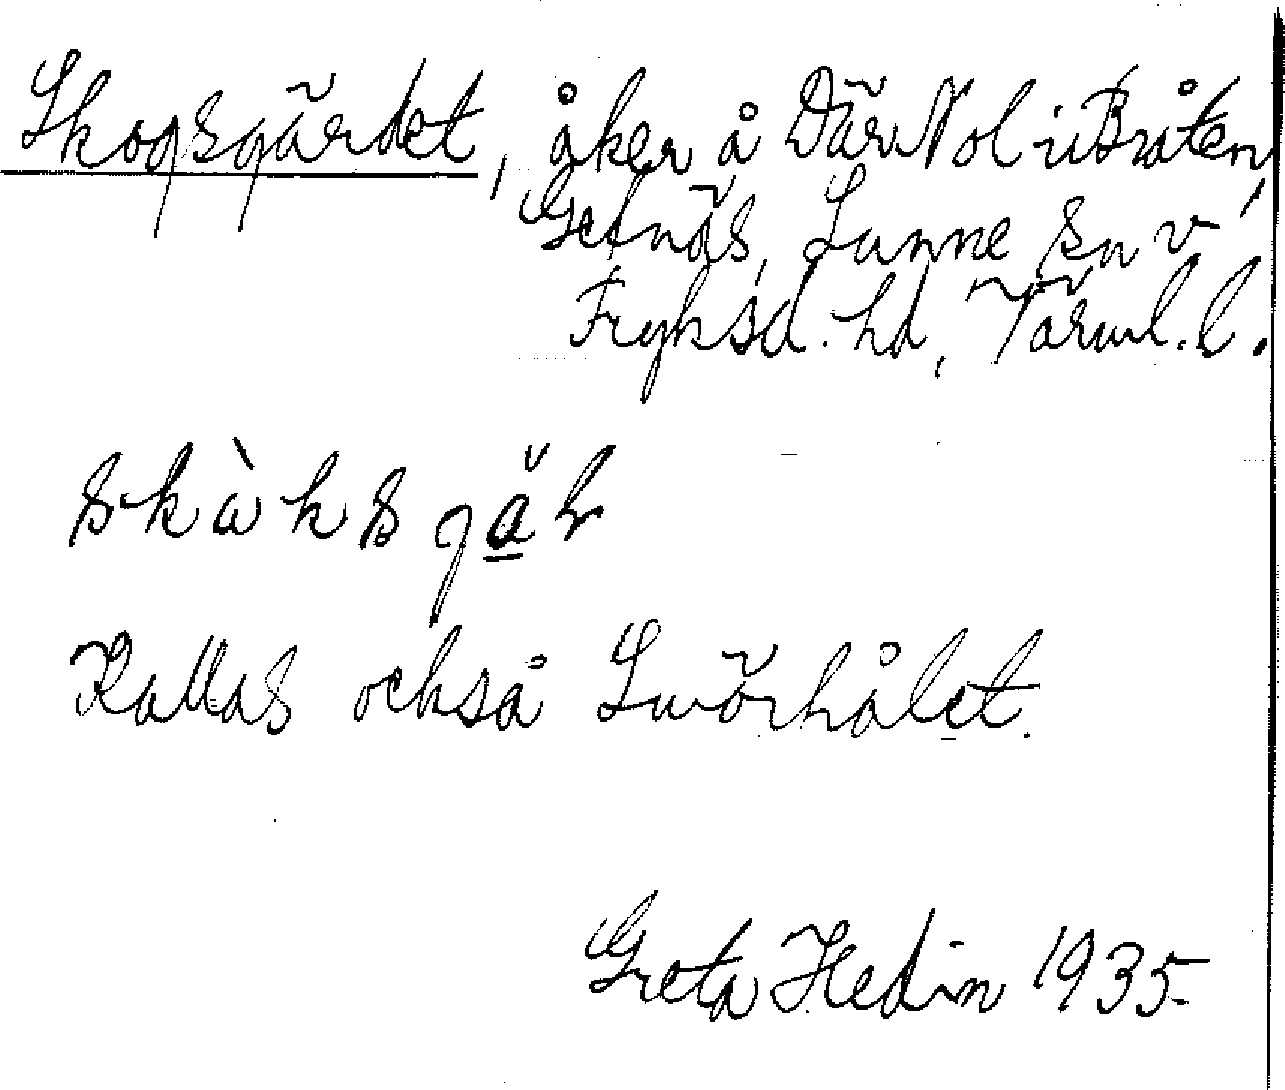 Skogsgärdet, åker å Där Nol i Bråten,
Getnäs, Sunne sn v
Fryksd. hd, Värml. l.
skàksgä̱r
Kallas också Smörhålet.
Greta Hedin 1935